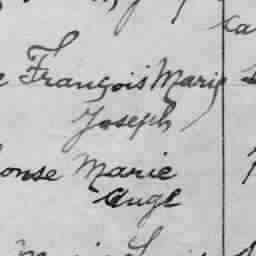 François Marie
Joseph
onse Marie
Ange